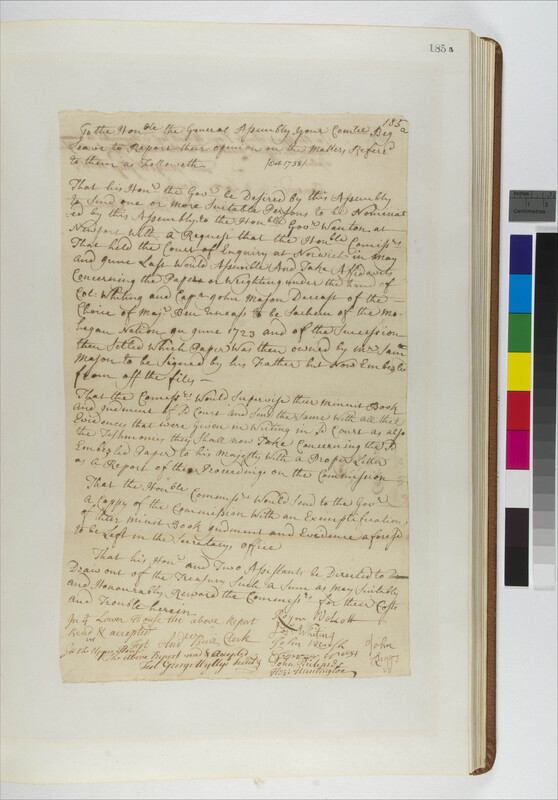 185 a
185
a
To the Honble the General Assembly your Comtee Beg
Leave to Report their opinion on the Matters Referd
to them as Followeth
[Oct. 1738]
That his Honr the Govr be Desired by this Assembly
to Send one or more Suitable Persons to be Nominat
ed by this Assembly, to the Honble Govr Wanton at
Newport With a Request that the Honble Comissrs
That held the Court of Enquiry at Norwich in may
And June Last Would Assemble And Take Affidavits
Concerning the Paper or Weighting under the hand of
Col: Whiting and Capn John Mason Deceast of the
Choice of Majr Ben Uncass to be Sachem of the Mo-
hegan Nation in June 1723 and of the Sucession
then Setled Which Paper Was then owned by mr Samll
Mason to be Signed by his Father but Now Embezled
from off the files
That the Comissrs Would Supervise their Minut Book
And Judment of Sd Court and Send the Same With all the
Evidences that were Given in Writing in Sd Court as also
the Testimonies they Shall now Take Concerning the Sd
Embezled Paper to his Majesty With a Proper Letter
or A Report of their Proceedings on the Commission
That the Honble Commissrs Would Send to the Govr
A Coppy of the Commission With an Exemplification
of their minut Book Judment and Evidence aforesd
to be Left in the Secretarys office
That his Honr and Two Assistants be Directed to
Draw out of the Treasury Such a Sum as may Suitably
and Honourably Reward the Commissrs for their Costs
and Trouble herein
Roger Wolcott
In ye Lower House the above Report
Read & accepted
Test Andw Burr Clerk
Jos: Whiting
John
John
Riggs
In the Upper House
The above Report read & accepted
Test George Wyllys Secretry
Hez: Huntington